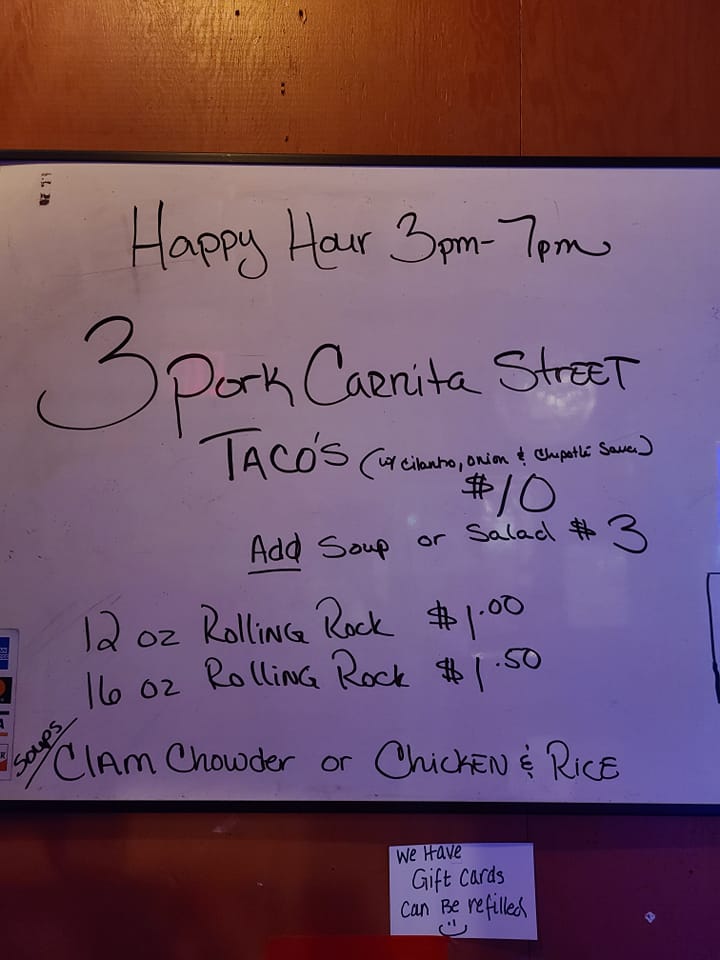 Happy Hour 3pm-7pm
3 Pork Carnita Street
Taco's (w/ cilantro, onion & Chipotlé Sauce)
$10
Add Soup or Salad $3
12 oz Rolling Rock $1.00
16 oz Rolling Rock $1.50
Soups/ Clam Chowder or Chicken & Rice
We Have
Gift Cards
Can Be refilled